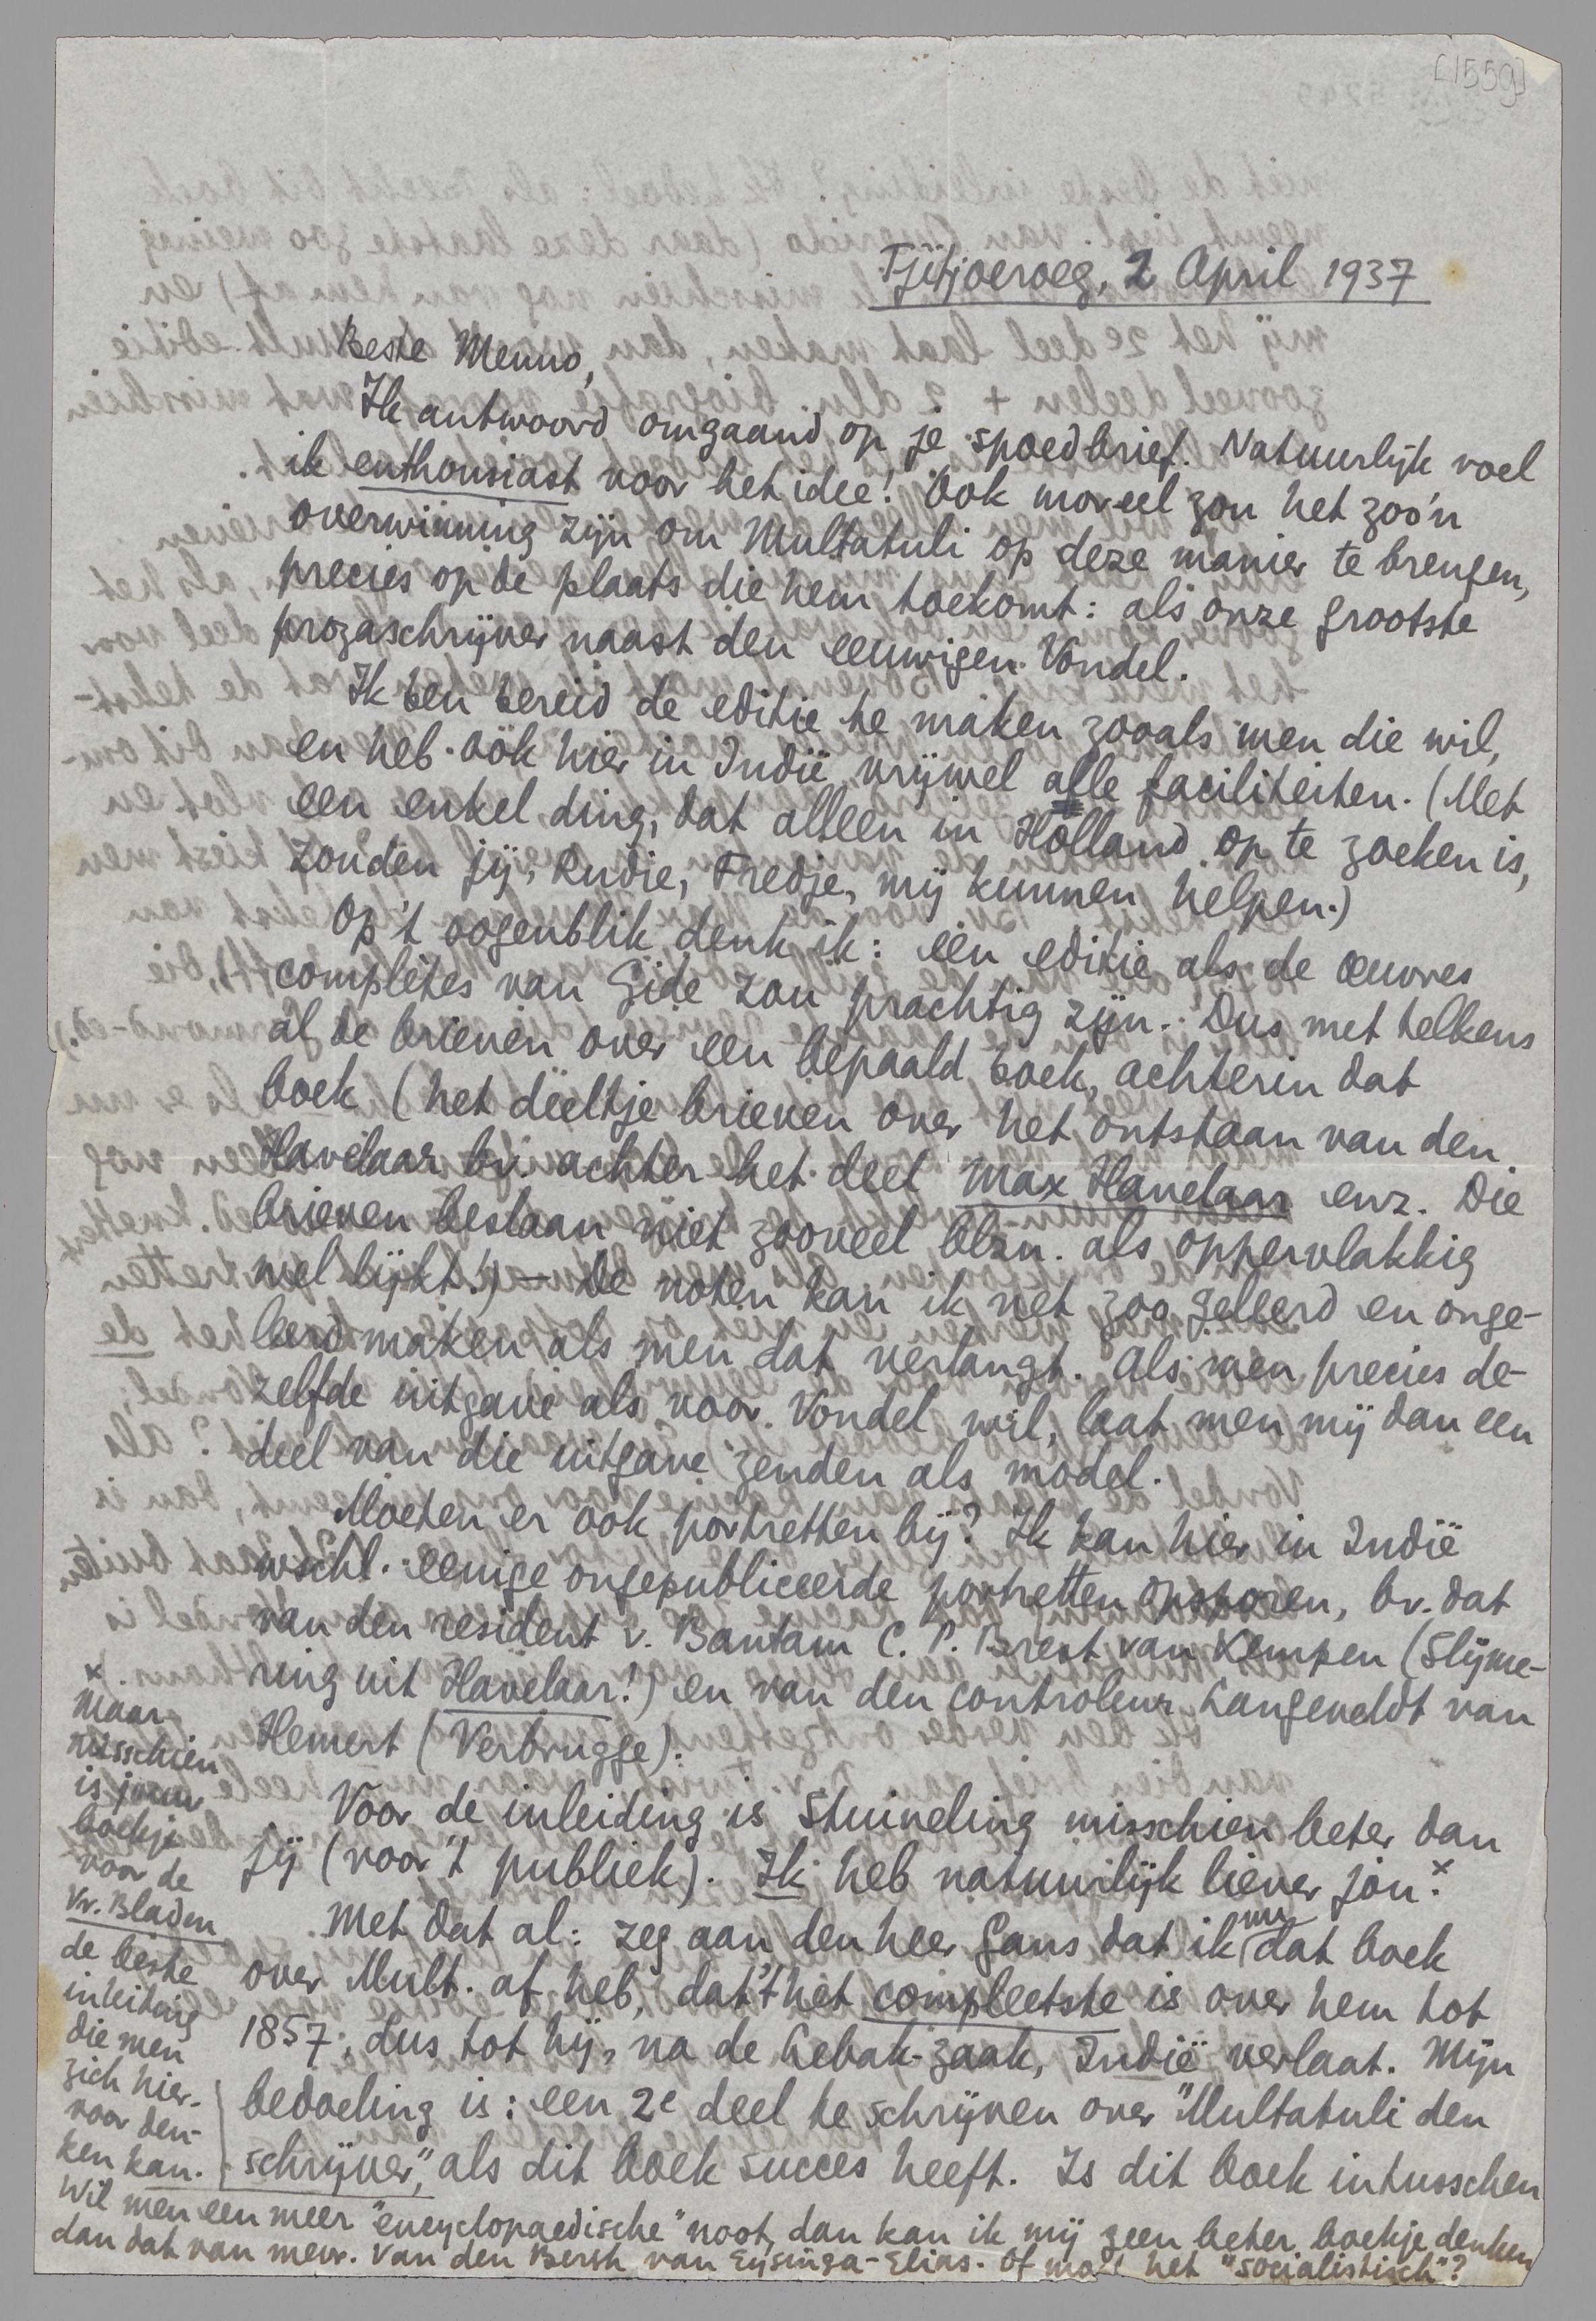 [1559]
Tjitjoeroeg, 2 April 1937
Beste Menno,
Ik antwoord omgaand op je spoedbrief. Natuurlijk voel
ik enthousiast voor het idee! Ook moreel zou het zoo'n
overwinning zijn om Multatuli op deze manier te brengen,
precies op de plaats die hem toekomt: als onze grootste
prozaschrijver naast den eeuwigen Vondel.
Ik ben bereid de editie te maken zooals men die wil,
en heb ook hier in Indië vrijwel alle faciliteiten. (Met
een enkel ding, dat alleen in Holland op te zoeken is,
zouden jij, Rudie, Fredje, mij kunnen helpen.)
Op 't oogenblik denk ik: een editie als de œuvres
complètes van Gide zou prachtig zijn. Dus met telkens
al de brieven over een bepaald boek, achterin dat
boek (het deeltje brieven over het ontstaan van den
Havelaar bv. achter het deel Max Havelaar enz. Die
brieven beslaan niet zooveel blzn. als oppervlakkig
wel lijkt!) — De noten kan ik net zoo geleerd en onge-
leerd maken als men dat verlangt. Als men precies de-
zelfde uitgave als voor Vondel wil, laat men mij dan een
deel van die uitgave zenden als model.
Moeten er ook portretten bij? Ik kan hier in Indië
wschl. eenige ongepubliceerde portretten opsporen, bv. dat
van den resident v. Bantam C. P. Brest van Kempen (Slijme-
ring uit Havelaar!) en van den controleur Langeveldt van
Hemert (Verbrugge).
Voor de inleiding is Stuiveling misschien beter dan
jij (voor 't publiek). Ik heb natuurlijk liever jou.x
Met dat al: zeg aan den heer Gans dat ik nu dat boek
over Mult. af heb, dat 't het compleetste is over hem tot
1857; dus tot hij, na de Lebak-zaak, Indië verlaat. Mijn
bedoeling is: een 2e deel te schrijven over "Multatuli den
schrijver", als dit boek succes heeft. Is dit boek intusschen
x
Maar
misschien
is jouw
boekje
voor de
Vr. Bladen
de beste
inleiding
die men
zich hier-
voor den-
ken kan.
Wil men een meer "encyclopaedische" noot, dan kan ik mij geen beter boekje denken
dan dat van mevr. van den Bergh van Eysinga-Elias. Of mag het "socialistisch"?